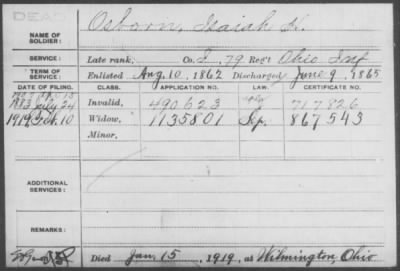 DEAD
NAME OF SOLDIER: Osborn, Isaiah H.
SERVICE: Late rank, Co. I, 79 Reg't Ohio Inf
TERM OF SERVICE: Enlisted Aug. 10, 1862 Discharged June 9, 1865
DATE OF FILING. CLASS. APPLICATION NO. LAW. CERTIFICATE NO.
1883 July 24 Invalid, 490623 717826
1919 10 Widow, 1135801 Sep. 867543
Minor.
ADDITIONAL SERVICES:
REMARKS:
Died Jan. 15, 1919, at Wilmington, Ohio